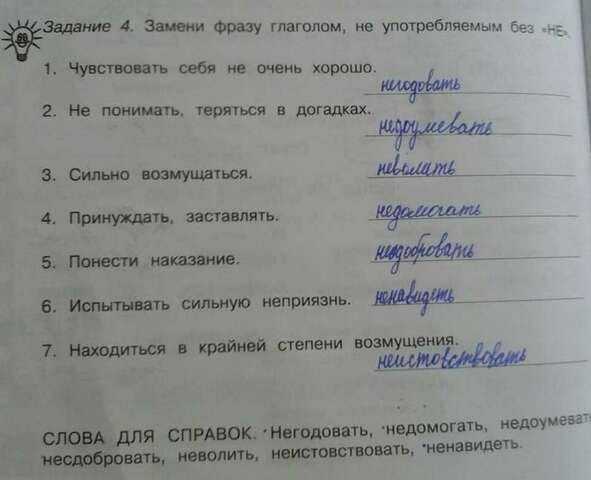 Задание 4. Замени фразу глаголом, не употребляемым без «НЕ».
1. Чувствовать себя не очень хорошо. негодовать
2. Не понимать, теряться в догадках. недоумевать
3. Сильно возмущаться. неволить
4. Принуждать, заставлять. недомогать
5. Понести наказание. несдобровать
6. Испытывать сильную неприязнь. ненавидеть
7. Находиться в крайней степени возмущения. неистовствовать
СЛОВА ДЛЯ СПРАВОК. Негодовать, недомогать, недоумеват
несдобровать, неволить, неистовствовать, ненавидеть.